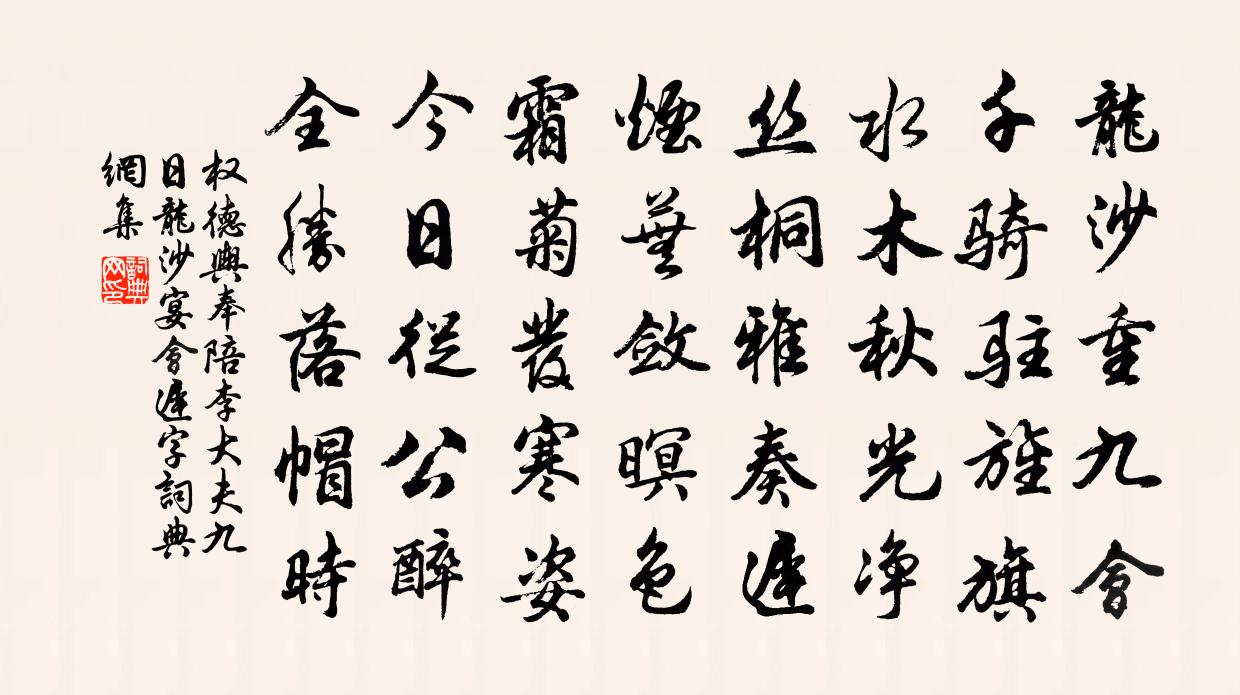 龍沙重九會
千騎駐旌旗
水木秋光净
丝桐雅奏遲
煙蕪斂暝色
霜菊發寒姿
今日從公醉
全勝落帽時
权德輿奉陪李大夫九
日龍沙宴會遲字詞典
網集
詞典網印